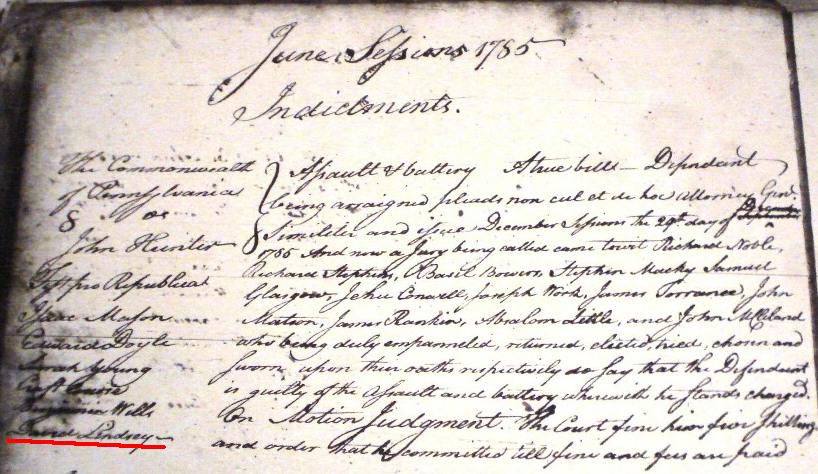 June Sessions 1785
Indictments.
The Commonwealth
of Pennsylvania
vs
John Hunter
Test pro Republica
Isaac Mason
Edward Doyle
Sarah Young
Benjamin Wells
David Lindsey
Assault & battery A true bill — Defendant
being arraigned pleads non cul et de hoc Attorney Genl.
Similiter and issue December Sessions the 20th day of
1785 And now a Jury being called came towit Richard Noble,
Richard Stephens, Basil Bowers, Stephen Macky Samuel
Glasgow, Jehu Conwell, Joseph Work, James Torrance, John
Matson, James Rankin, Absalom Little, and John McLeland
who being duly empannelled, returned, elected, tried, chosen and
sworn upon their oaths respectively do say that the Defendant
is guilty of the Assault and battery wherewith he stands charged.
On Motion Judgment. The Court fine him five shillings
and order that he committed till fine and fees are paid